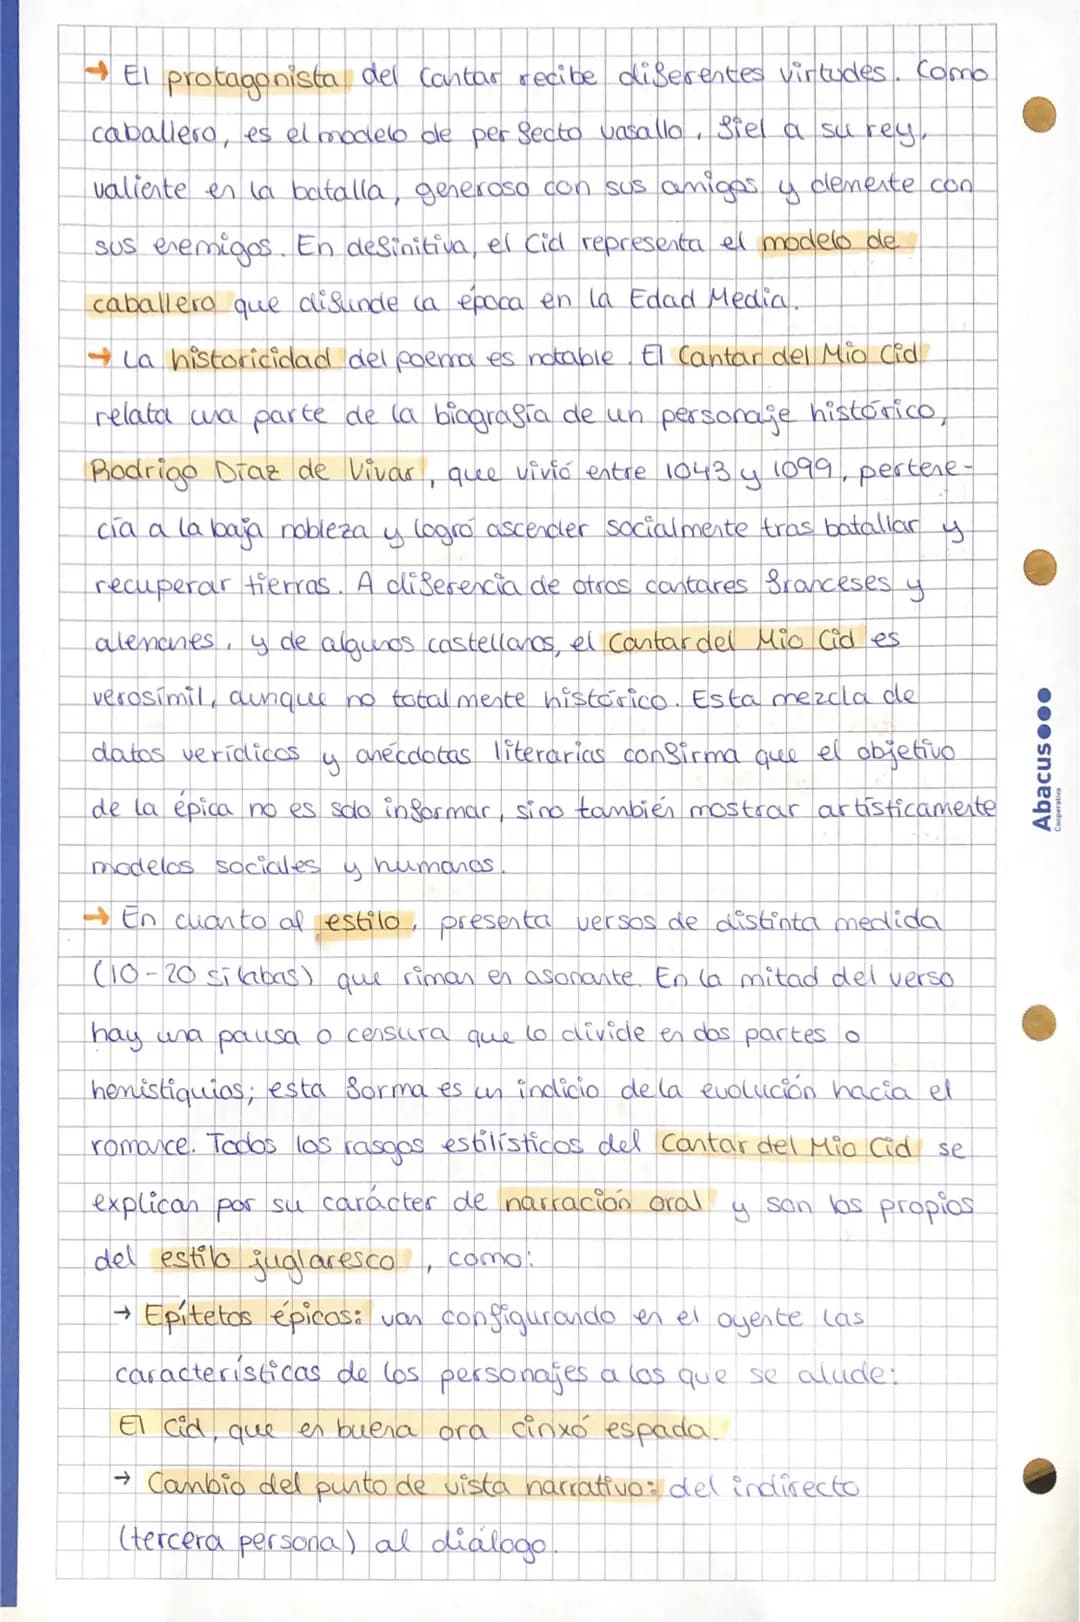 → El protagonista del Cantar recibe diferentes virtudes. Como
caballero, es el modelo de perfecto vasallo, fiel a su rey,
valiente en la batalla, generoso con sus amigos y clemente con
sus enemigos. En definitiva, el Cid representa el modelo de
caballero que difunde la época en la Edad Media.
→ La historicidad del poema es notable. El Cantar del Mio Cid
relata una parte de la biografía de un personaje histórico,
Rodrigo Díaz de Vivar, que vivió entre 1043 y 1099, pertene-
cía a la baja nobleza y logró ascender socialmente tras batallar y
recuperar tierras. A diferencia de otros cantares franceses y
alemanes, y de algunos castellanos, el Cantar del Mio Cid es
verosímil, aunque no totalmente histórico. Esta mezcla de
datos verídicos y anécdotas literarias confirma que el objetivo
de la épica no es solo informar, sino también mostrar artísticamente
modelos sociales y humanos.
→ En cuanto al estilo, presenta versos de distinta medida
(10-20 sílabas) que riman en asonante. En la mitad del verso
hay una pausa o censura que lo divide en dos partes o
hemistiquios; esta forma es un indicio de la evolución hacia el
romance. Todos los rasgos estilísticos del Cantar del Mio Cid se
explican por su carácter de narración oral y son los propios
del estilo juglaresco, como:
→ Epítetos épicos: van configurando en el oyente las
características de los personajes a los que se alude:
El Cid, que en buena ora cinxó espada.
→ Cambio del punto de vista narrativo: del indirecto
(tercera persona) al diálogo.
Abacus
Cooperativa